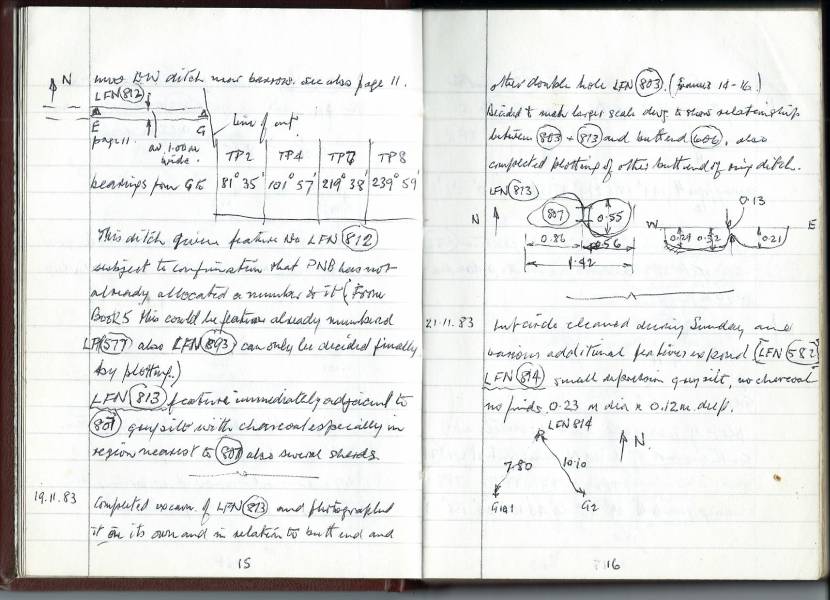 N
DW ditch near barrow. see also page 11.
LFN 812
E G
page 11.
av. 1.00m
wide.
Line of cut
TP2 TP4 TP7 TP8
bearings from G to 81° 35' 101° 57' 219° 38' 239° 59'
This ditch given feature No LFN 812
subject to confirmation that PNB has not
already allocated a number to it (From
Book 5 this could be feature already numbered
LFN 577 also LFN 893 can only be decided finally
by plotting.)
LFN 813 feature immediately adjacent to
807 grey silt with charcoal especially in
region nearest to 807 also several sherds.
19.11.83 Completed excavn. of LFN 813 and photographed
it on its own and in relation to butt end and
15
other double hole LFN 803. (frames 14-16.)
Decided to make larger scale dwg. to show relationship
between 803 + 813 and butt end 606, also
completed plotting of other butt end of ring ditch.
LFN 813
N
807
0.55
0.86 0.56
1.42
0.13
W E
0.29 0.32 0.21
21.11.83 hut circle cleaned during Sunday and
various additional features exposed [LFN 582]
LFN 814 small depression grey silt, no charcoal
no finds. 0.23 m dia x 0.12m. deep.
LFN 814
N.
7.80 10.10
G2
16